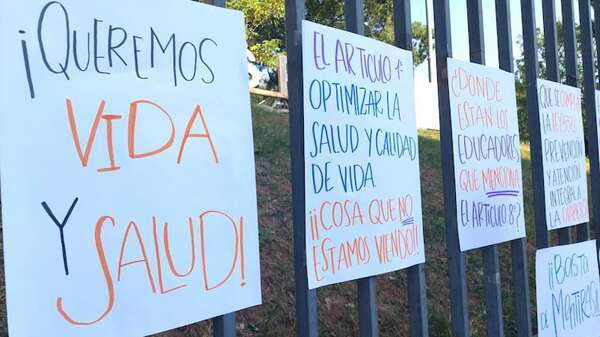 ¡QUEREMOS
VIDA
Y
SALUD!
EL ARTÍCULO 1º
OPTIMIZAR LA
SALUD Y CALIDAD
DE VIDA.
¡¡COSA QUE NO
ESTAMOS VIENDO!!
¿DONDE
ESTAN LOS
EDUCADORES
QUE MENCIONA
EL ARTICULO 8º?
QUE SE CUMPLA
LA LEY
PREVENCIÓN
Y ATENCIÓN
INTEGRAL A
LA
¡¡BASTA
DE MENTIRAS